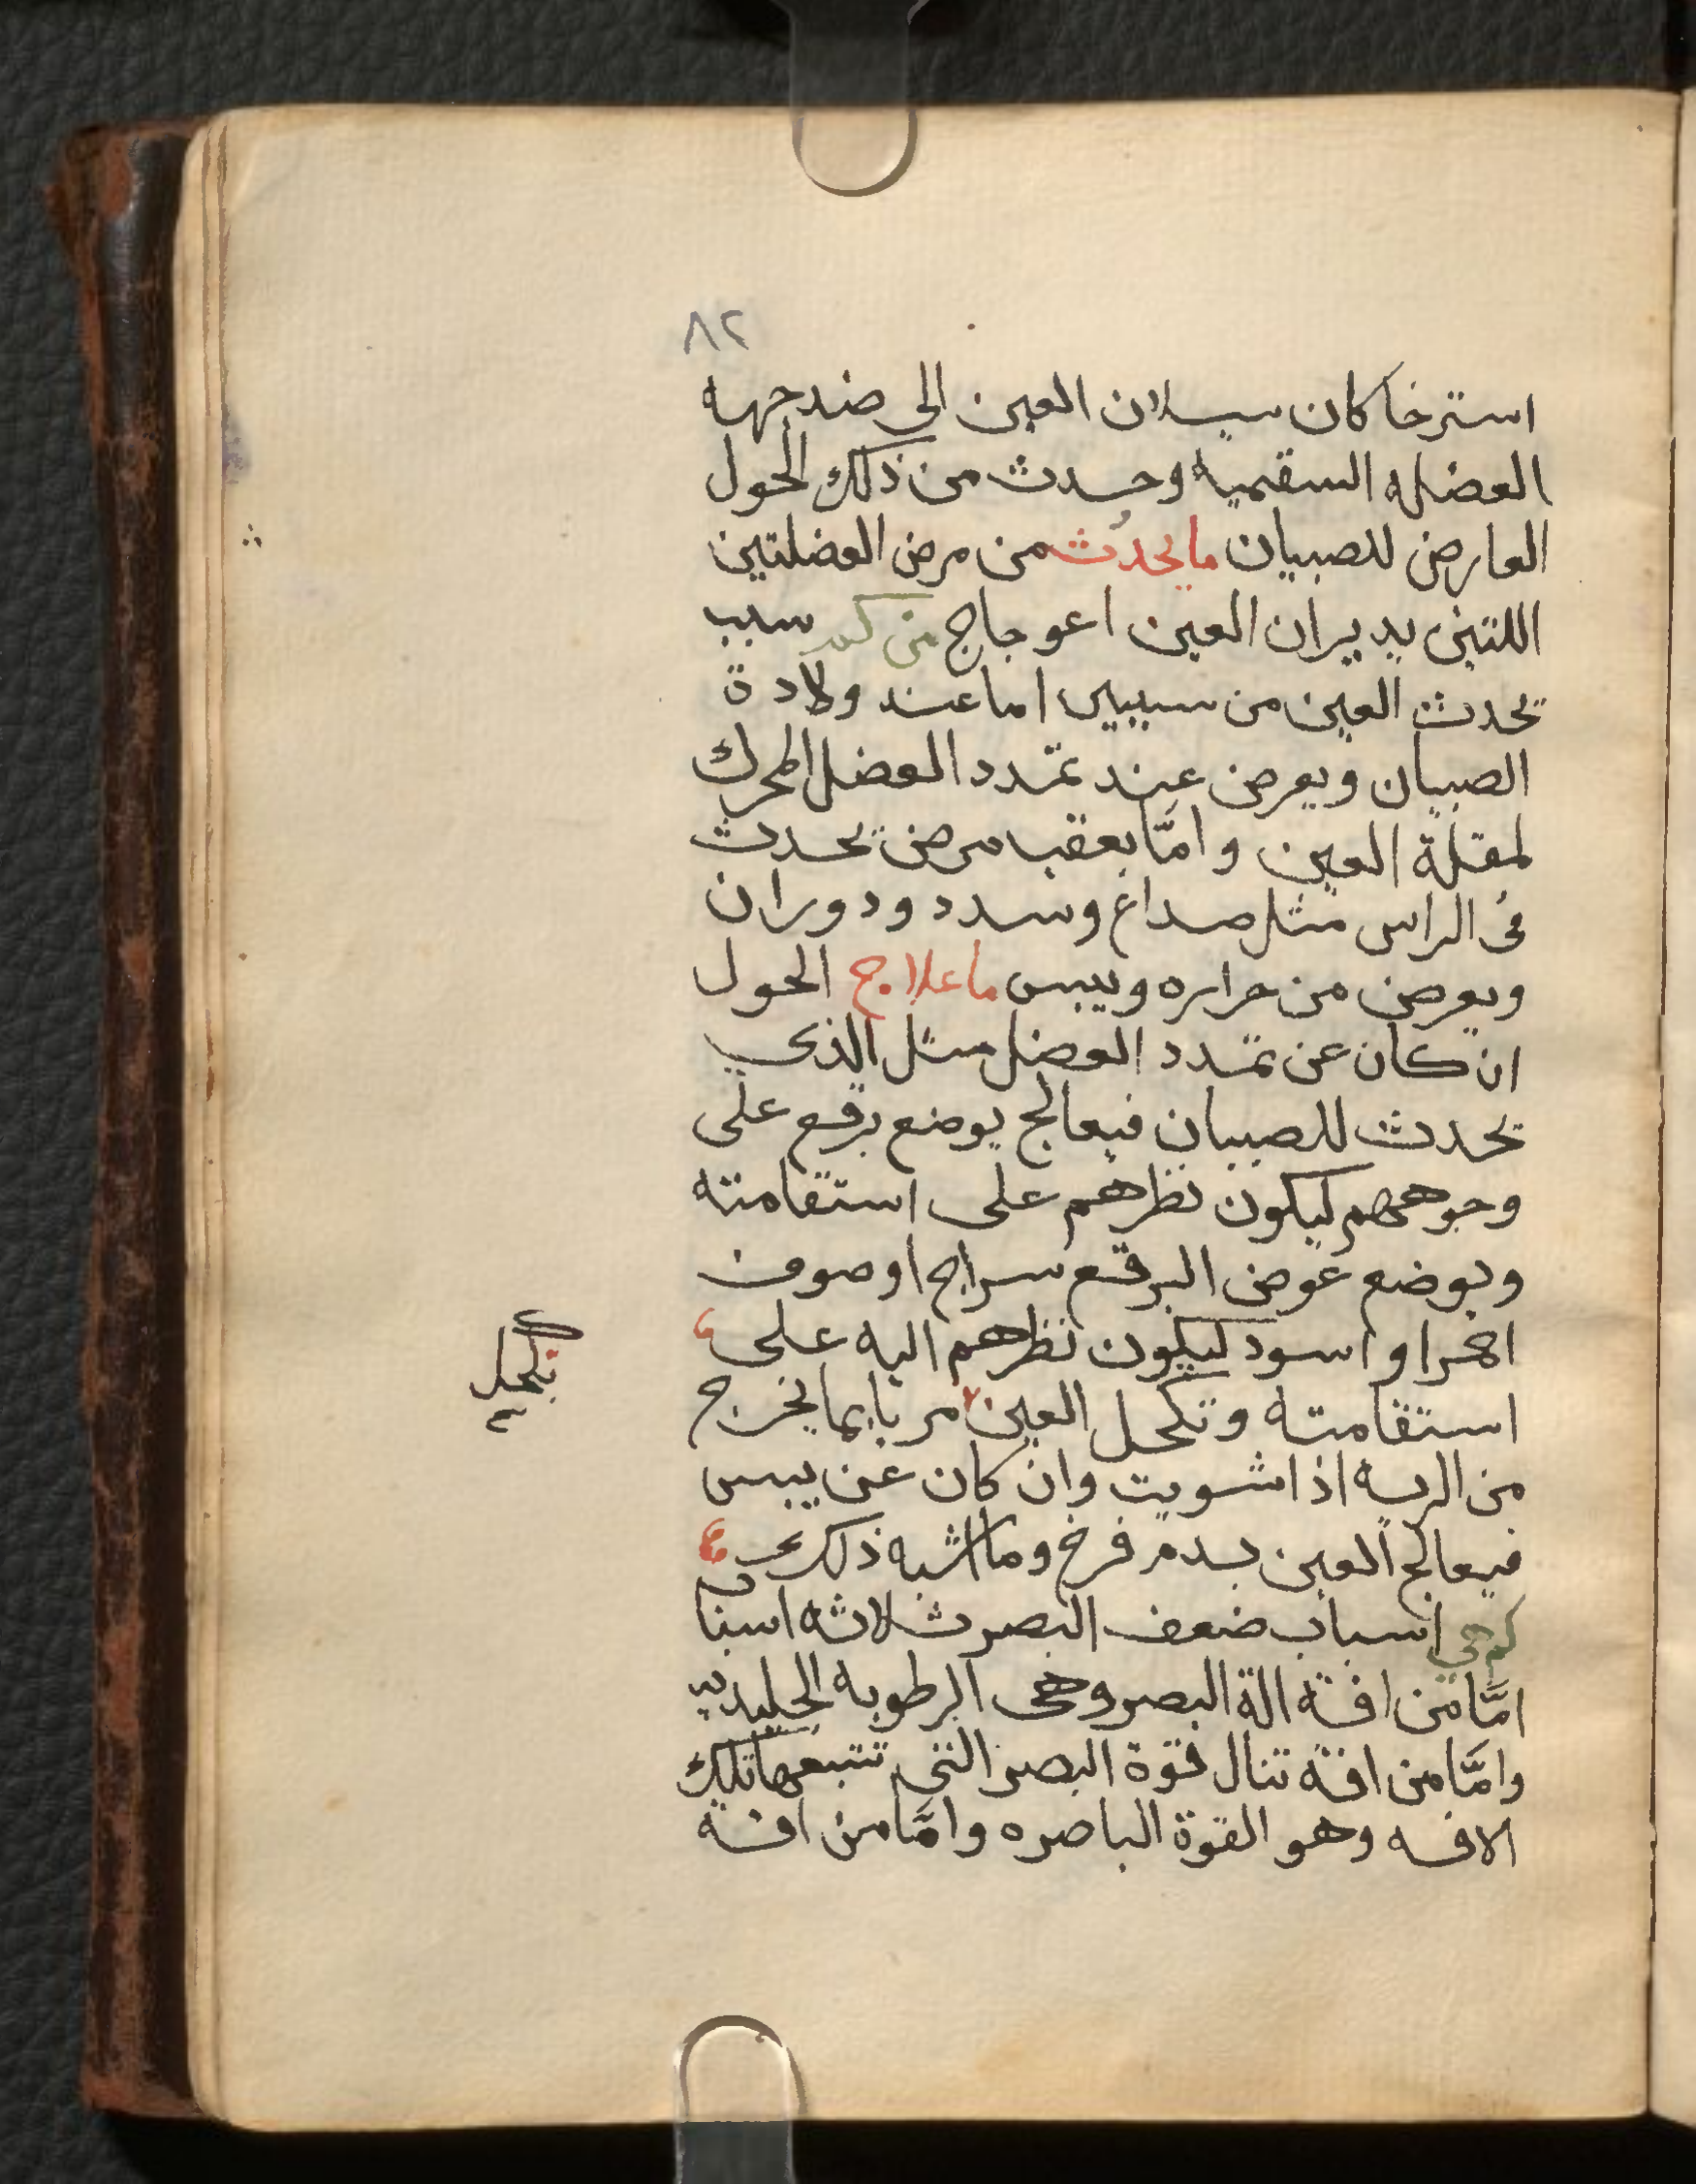 ٨٢
استرخا كان سيلان العين الى ضد جهه
العضله السقميه وحدث من ذلك الحول
العارض للصبيان ما يحدث من مرض العضلتين
اللتين يديران العين اعوجاج من كم سبب
تحدث العين من سببين اما عند ولادة
الصبيان ويعرض عند تمدد العضل المحرك
لمقلة العين وامّا بعقب مرض تحدث
فى الراس مثل صداع وسدد ودوران
ويعرض من حراره ويبس ما علاج الحول
ان كان عن تمدد العضل مثل الذى
تحدث للصبيان فيعالج يوضع برقع على
وجوههم ليكون نظرهم على استقامته
ويوضع عوض البرقع سراج او صوف
احمر او اسود ليكون نظرهم اليه على
استقامته وتكحل العين مر با بما يخرج
من الريه اذا شويت وان كان عن يبس
فيعالج العين بدم فرخ وما اشبه ذلك
كم هى اسباب ضعف البصر ثلاثه اسبا
امّا من افة الة البصر وهى الرطوبه الجليديه
وامّا من افة تنال قوة البصر التى تتبعها تلك
الافه وهو القوة الباصره وامّا من افة
تكحل